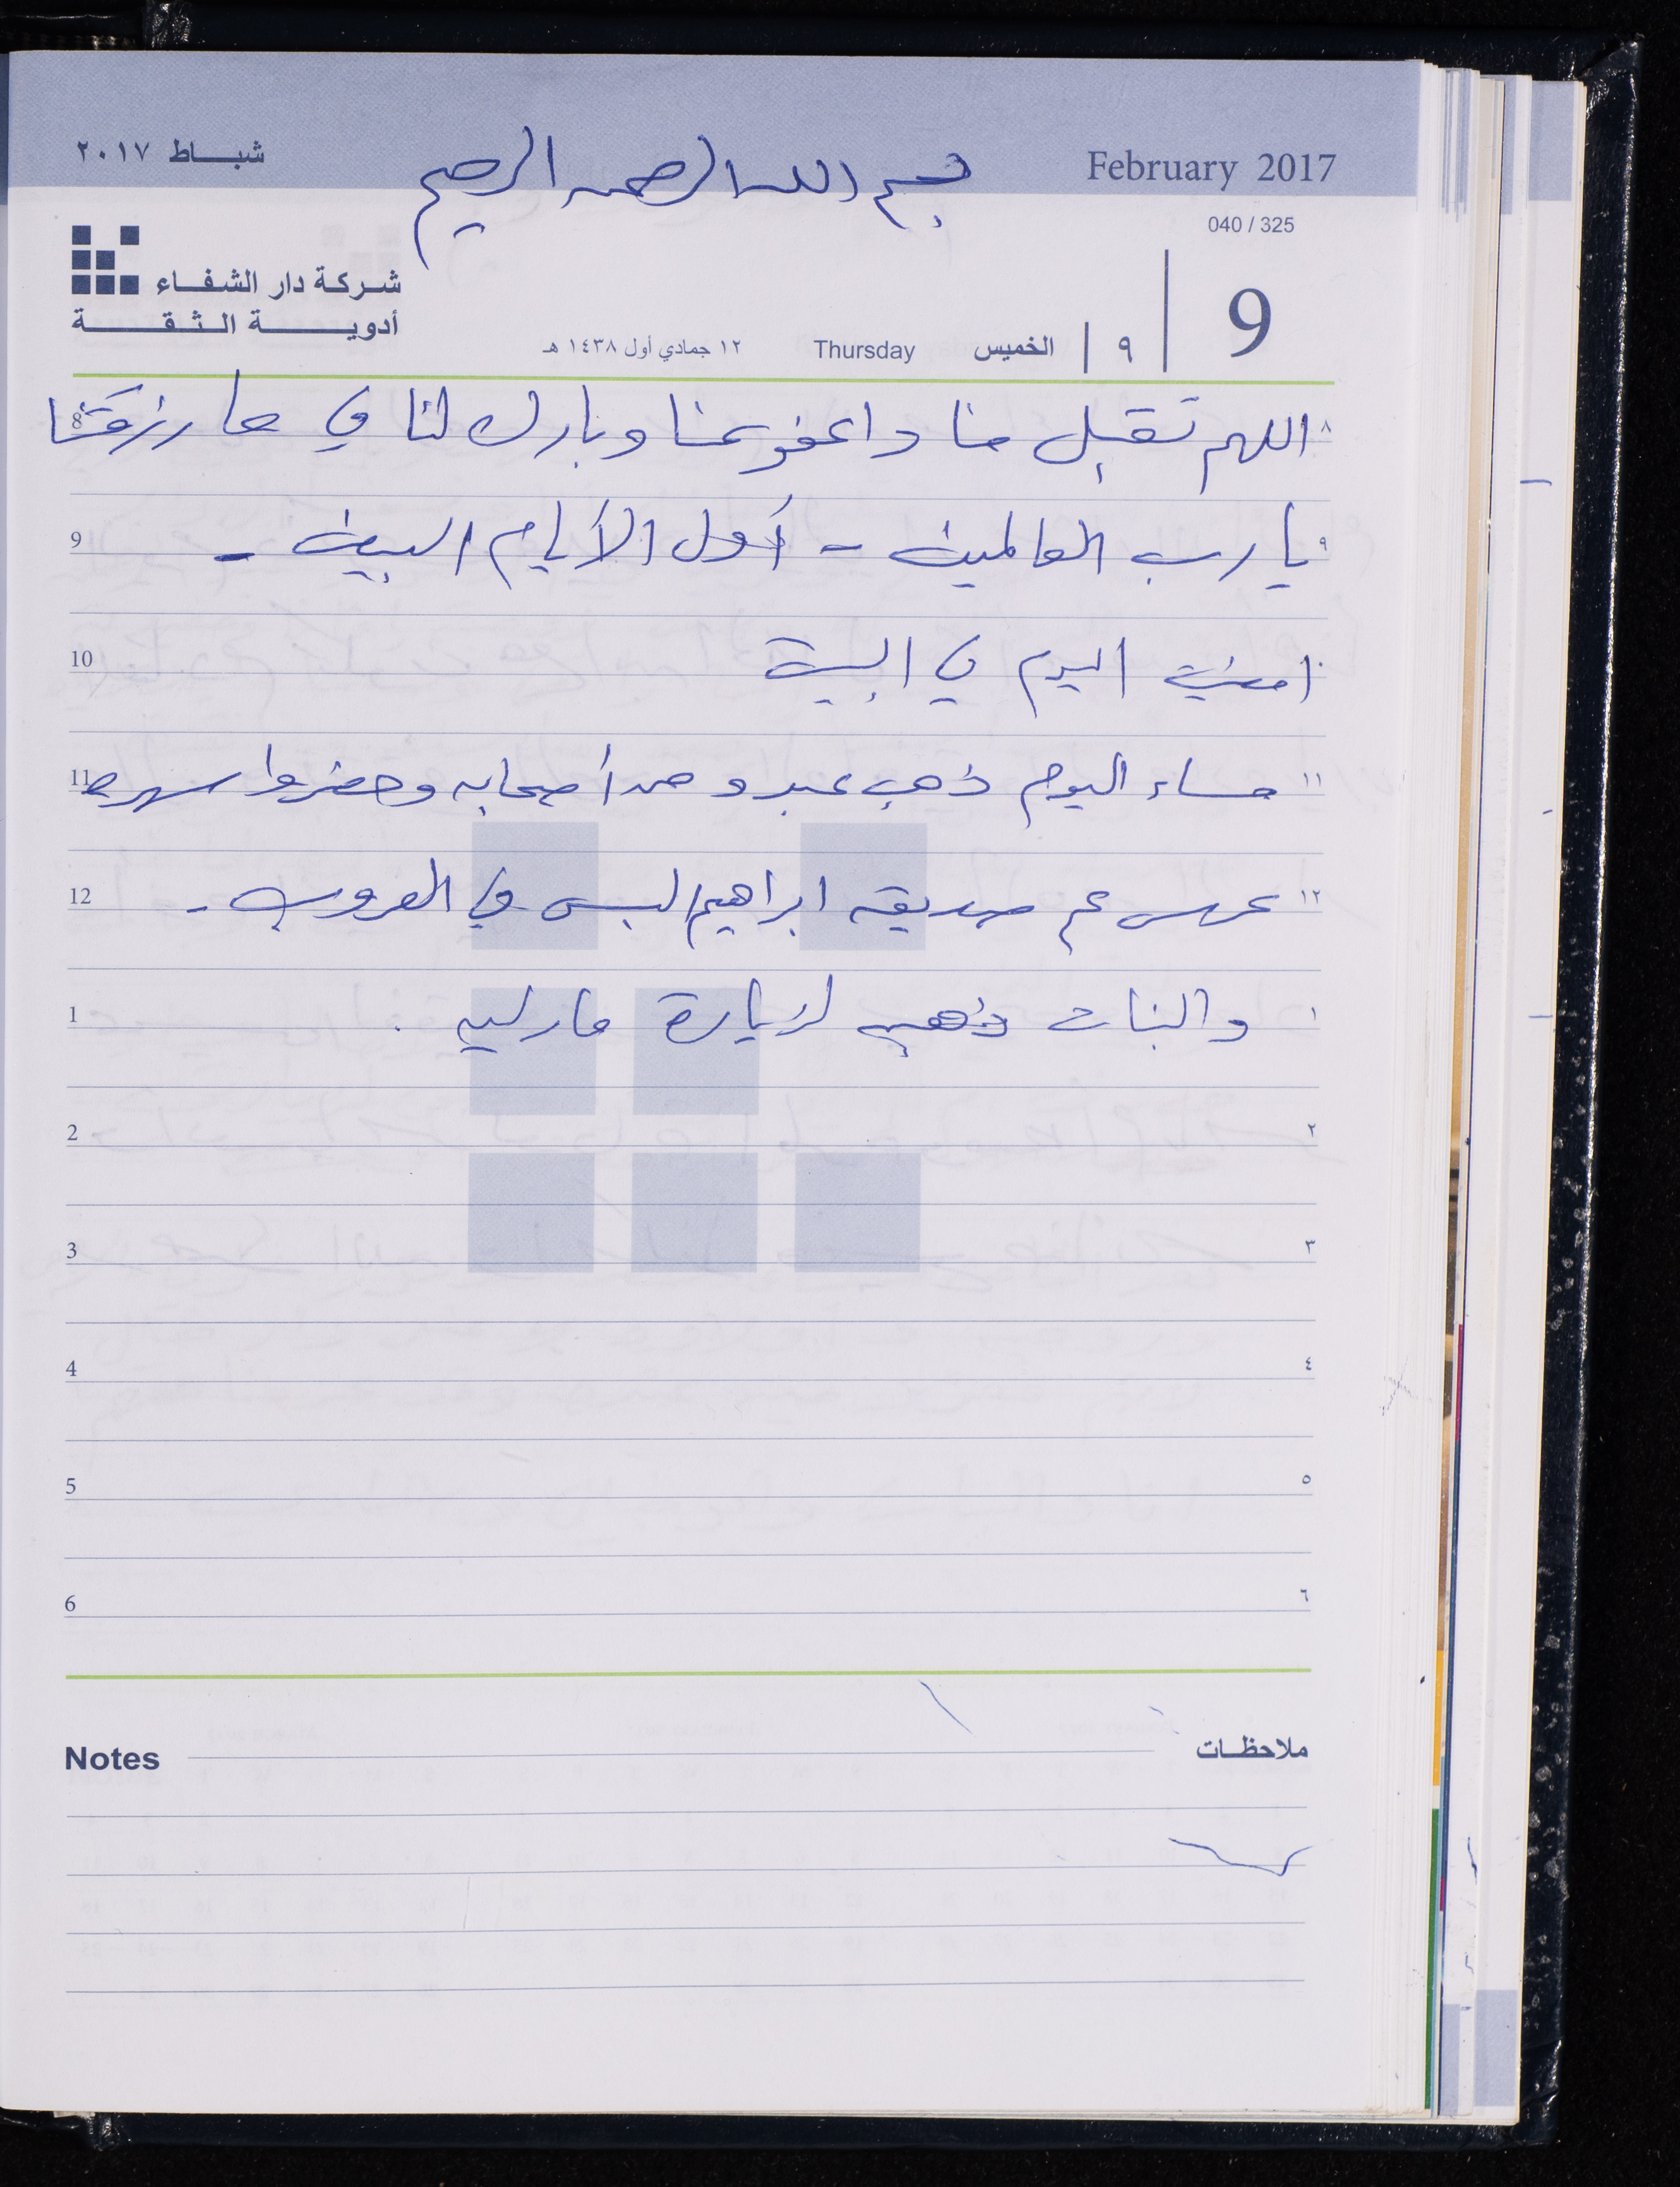 شباط ٢٠١٧
بسم الله الرحمن الرحيم
February 2017
040 / 325
شركة دار الشفاء
أدوية الثقة
9
٩
الخميس
Thursday
١٢ جمادي أول ١٤٣٨ هـ
٨ اللهم تقبل منا واعفو عنا وبارك لنا في ما رزقتنا 8
٩ يا رب العالمين - أول الأيام البيض - 9
١٠ اليوم في البيت 10
١١ مساء اليوم ذهب عبد و أصحابه وحضروا سهرة 11
١٢ عرس عم صديقه ابراهيم في العروب - 12
١ والبنات ذهبن لزيارة 1
٢ 2
٣ 3
٤ 4
٥ 5
٦ 6
ملاحظات Notes